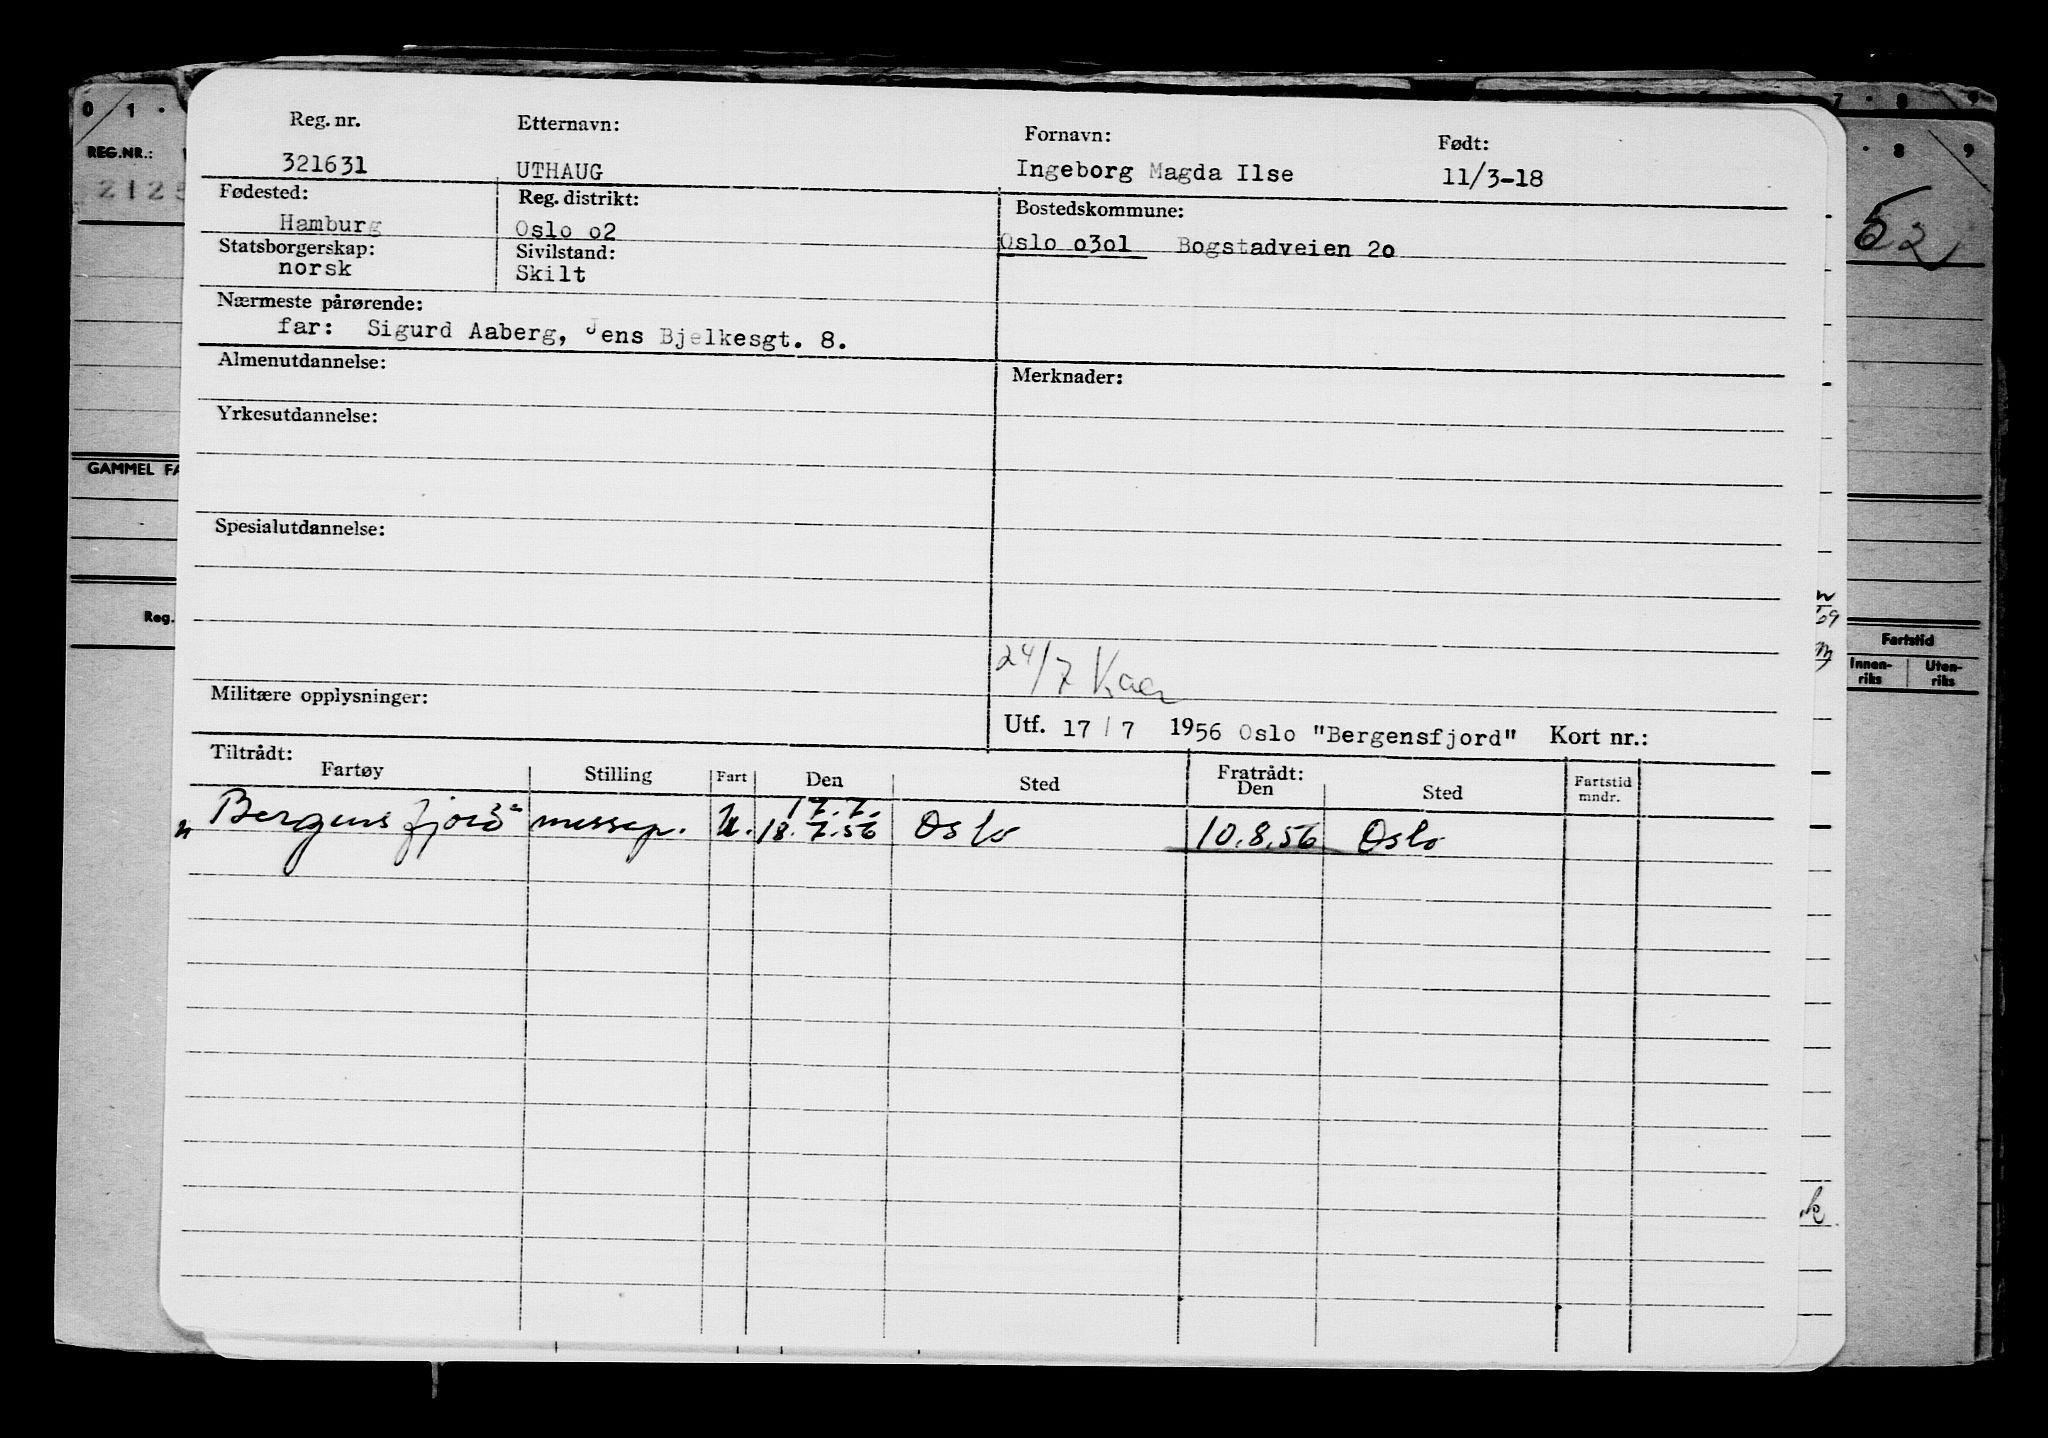 0 1 · 7 · 8 9
REG.NR.: · 8 9
Reg. nr. Etternavn: Fornavn: Født:
321631 UTHAUG Ingeborg Magda Ilse 11/3-18
2125 52
Fødested: Reg. distrikt: Bostedskommune:
Hamburg Oslo o2 Oslo o3o1 Bogstadveien 2o
Statsborgerskap: Sivilstand:
norsk Skilt
Nærmeste pårørende:
far: Sigurd Aaberg, Jens Bjelkesgt. 8.
Almenutdannelse: Merknader:
Yrkesutdannelse:
GAMMEL FA
Spesialutdannelse:
Reg. Fartstid
Innen-riks Uten-riks
24/7
Militære opplysninger:
Utf. 17 / 7 1956 Oslo "Bergensfjord" Kort nr.:
Tiltrådt: Fratrådt:
Fartøy Stilling Fart Den Sted Den Sted Fartstid mndr.
17.7.
Bergensfjord messep. U. 18.7.56 Oslo 10.8.56 Oslo